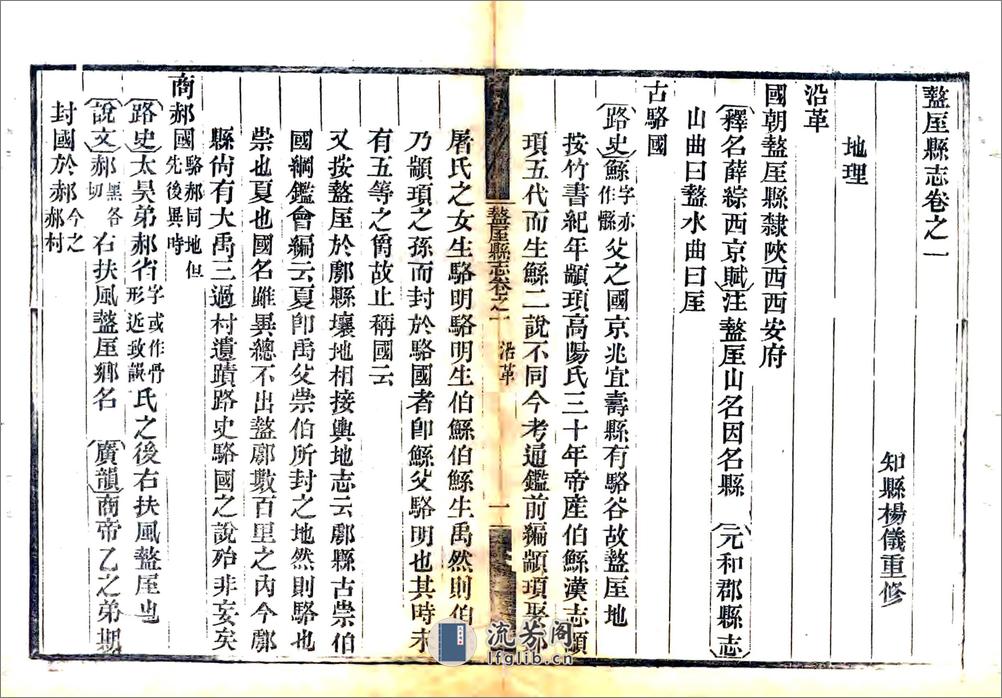 盩厔縣志卷之一
知縣楊儀重修
地理
沿革
國朝盩厔縣隸陝西西安府
釋名薛綜西京賦注盩厔山名因名縣 元和郡縣志
山曲曰盩水曲曰厔
古駱國
路史鯀字亦作𩩌父之國京兆宜壽縣有駱谷故盩厔地
按竹書紀年顓頊高陽氏三十年帝產伯鯀漢志顓
頊五代而生鯀二說不同今考通鑑前編顓頊娶鄒
盩厔縣志卷之一 沿革 一
屠氏之女生駱明駱明生伯鯀伯鯀生禹然則伯鯀
乃顓頊之孫而封於駱國者卽鯀父駱明也其時未
有五等之爵故止稱國云
又按盩厔於鄠縣壤地相接輿地志云鄠縣古崇伯
國綱鑑會編云夏卽禹父崇伯所封之地然則駱也
崇也夏也國名雖異總不出盩鄠數百里之內今鄠
縣尙有大禹三過村遺蹟路史駱國之說殆非妄矣
商郝國駱郝同地但先後異時
路史太昊弟郝省字或作骨形近致誤氏之後右扶風盩厔也
說文郝黑各切右扶風盩厔鄉名 廣韻商帝乙之弟期
封國於郝今之郝村
流芳阁
lfglib.cn